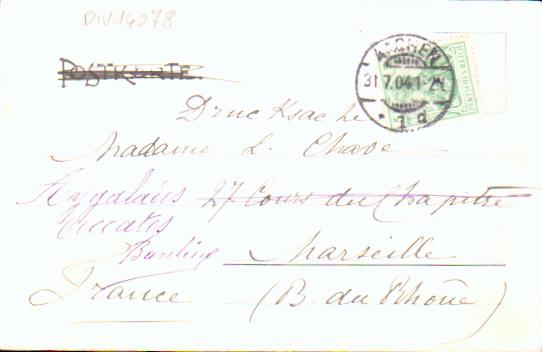 DIV-14078
POSTKARTE.
AACHEN
31.7.04.1-2N.
* 1 d
DEUTSCHES REICH
Drucksache
Madame L. Chave
Aygalades 27 Cours du Chapitre
Banlieue Marseille
France (B. du Rhône)